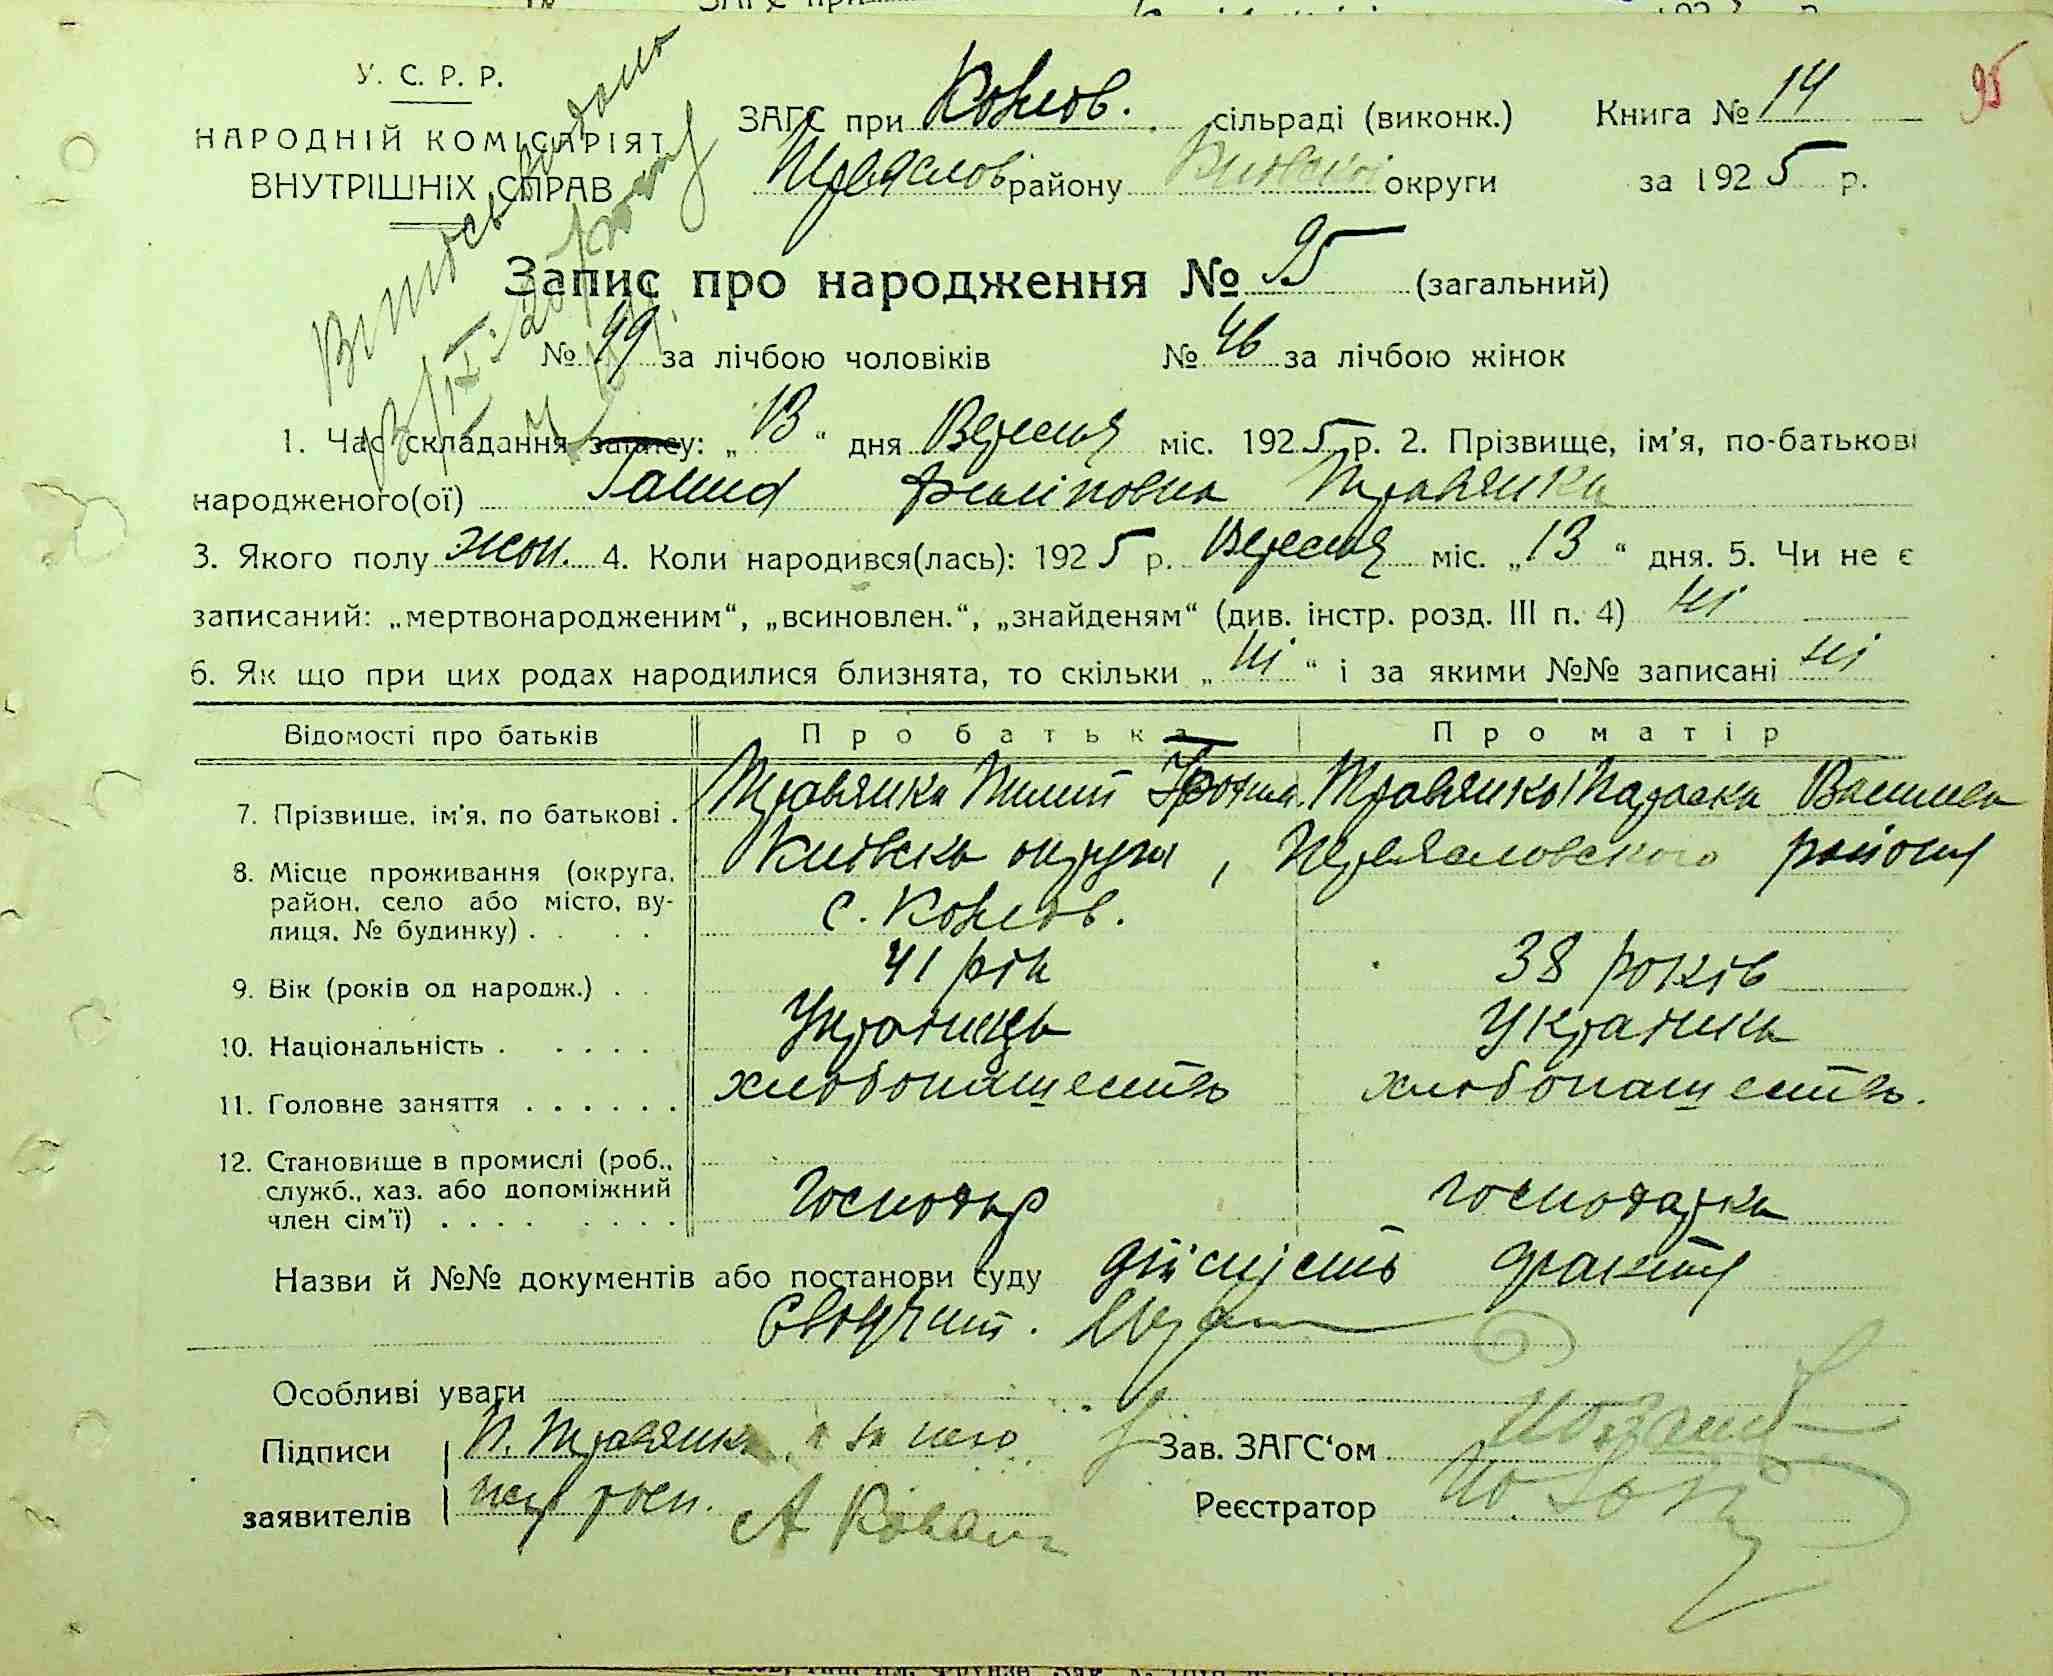 95
У. С. Р. Р.
НАРОДНІЙ КОМІСАРІЯТ
ВНУТРІШНІХ СПРАВ
ЗАГС при Ковлов. сільраді (виконк.) Книга № 14
Переяслов району Київської округи за 1925 р.
Запис про народження № 95 (загальний)
№ 49 за лічбою чоловіків № 46 за лічбою жінок
1. Час складання запису: „13“ дня Вересня міс. 1925 р. 2. Прізвище, ім'я, по-батькові
народженого(ої) Ганна Филіповна Травянка
3. Якого полу жон. 4. Коли народився(лась): 1925 р. Вересня міс. „13“ дня. 5. Чи не є
записаний: „мертвонародженим“, „всиновлен.“, „знайденям“ (див. інстр. розд. III п. 4) ні
6. Як що при цих родах народилися близнята, то скільки „ні“ і за якими №№ записані ні
Відомості про батьків Про батька Про матір
7. Прізвище, ім'я, по батькові . Травянка Пилип Травянка Параска Васильев
8. Місце проживання (округа, Київська округа, Переясловского району
район, село або місто, ву- с. Ковлов.
лиця, № будинку) . . . .
9. Вік (років од народж.) . . 41 рік 38 років
10. Національність . . . . . Українець Українка
11. Головне заняття . . . . . . хлебопашество хлебопашество.
12. Становище в промислі (роб.,
служб., хаз. або допоміжний Господар господарка
член сім'ї) . . . . . . . .
Назви й №№ документів або постанови суду дійсність факта
свідчит.
Особливі уваги
Підписи П. Травянка а за його Зав. ЗАГС'ом
заявителів росп. А Коваль Реєстратор